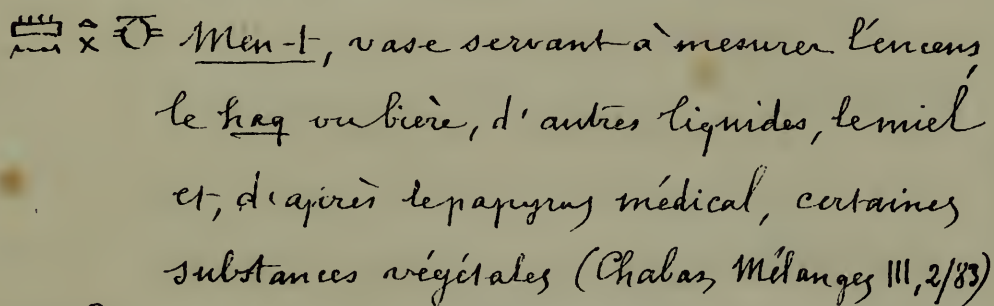 Men-t, vase servant à mesurer l'encens,
le haq ou bière, d'autres liquides, le miel
et, d'après le papyrus médical, certaines
substances végétales (Chabas, Mélanges III, 2/83)